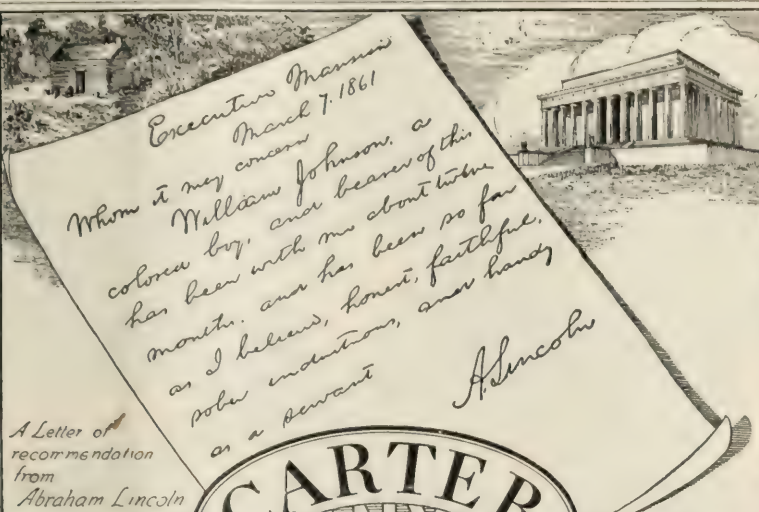 Executive Mansion
March 7. 1861
Whom it may concern
William Johnson, a
colored boy, and bearer of this
has been with me about twelve
months. and has been so far
as I believe, honest, faithful,
sober industrious, and handy
as a servant
A. Lincoln
A Letter of
recommendation
from
Abraham Lincoln
CARTER